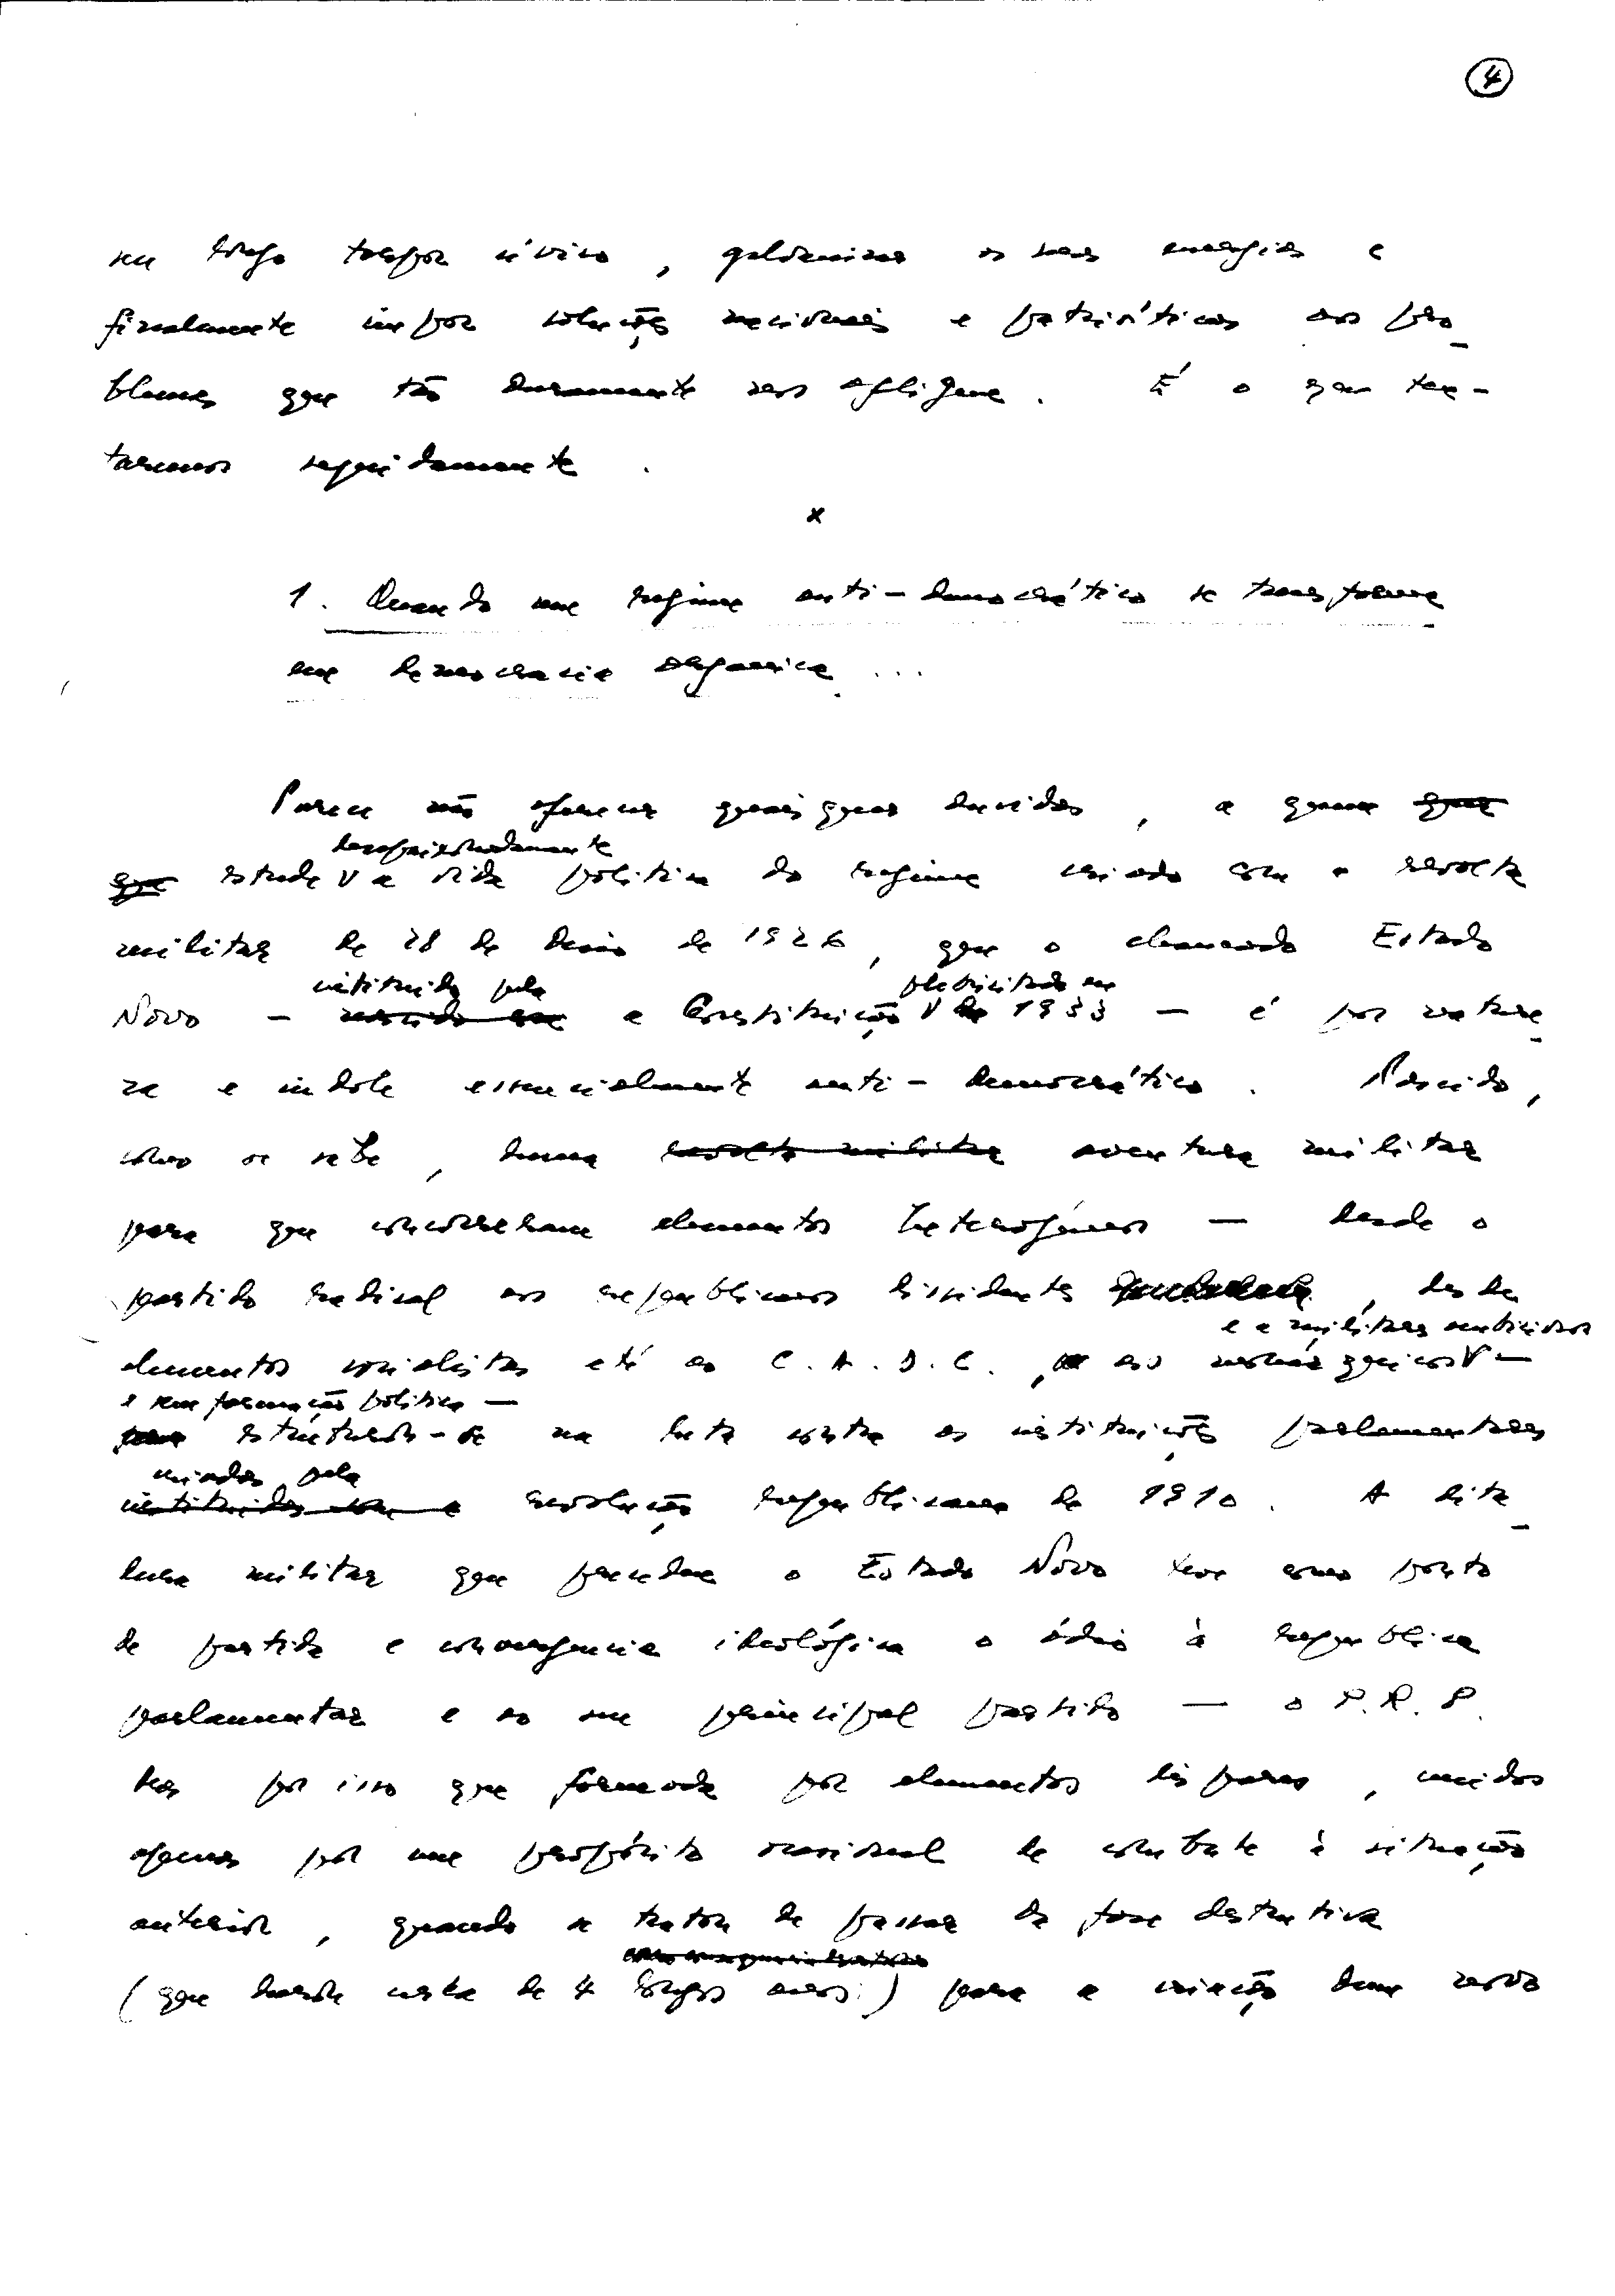 4
seu longo torpor cívico, galvanizar as suas energias e
finalmente impor soluções nacionais e patrióticas aos pro-
blemas que tão duramente nos afligem. É o que ten-
taremos seguidamente.
x
1. Quando um regime anti-democrático se transforma
em democracia orgânica...
Parece não oferecer quaisquer duvidas, a quem que
desapaixonadamente
que estude a vida politica do regime criado com a revolta
militar de 28 de Maio de 1926, que o chamado Estado
instituido pela plebiscitada em
Novo — nascido com a Constituição de 1933 — é por nature-
za e indole essencialmente anti-democrático. Nascido,
como se sabe, duma revolta militar aventura militar
para que concorreram elementos heterogéneos — desde o
partido radical aos republicanos dissidentes, desde
e a militares ambiciosos
elementos socialistas até ao C.A.D.C., aos monárquicos —
e sem formação politica —
para estruturou-se na luta contra as instituições parlamentares
criadas pela
instituidas com a revolução republicana de 1910. A dita-
dura militar que precedeu o Estado Novo teve como ponto
de partida e convergencia ideológica o ódio à republica
parlamentar e ao seu principal partido — o P.R.P.
Mas por isso que formada por elementos dispares, unidos
apenas por um propósito ocasional de combate à situação
anterior, quando se tratou de passar da fase destrutiva
(que durou cerca de 4 longos anos) para a criação duma nova